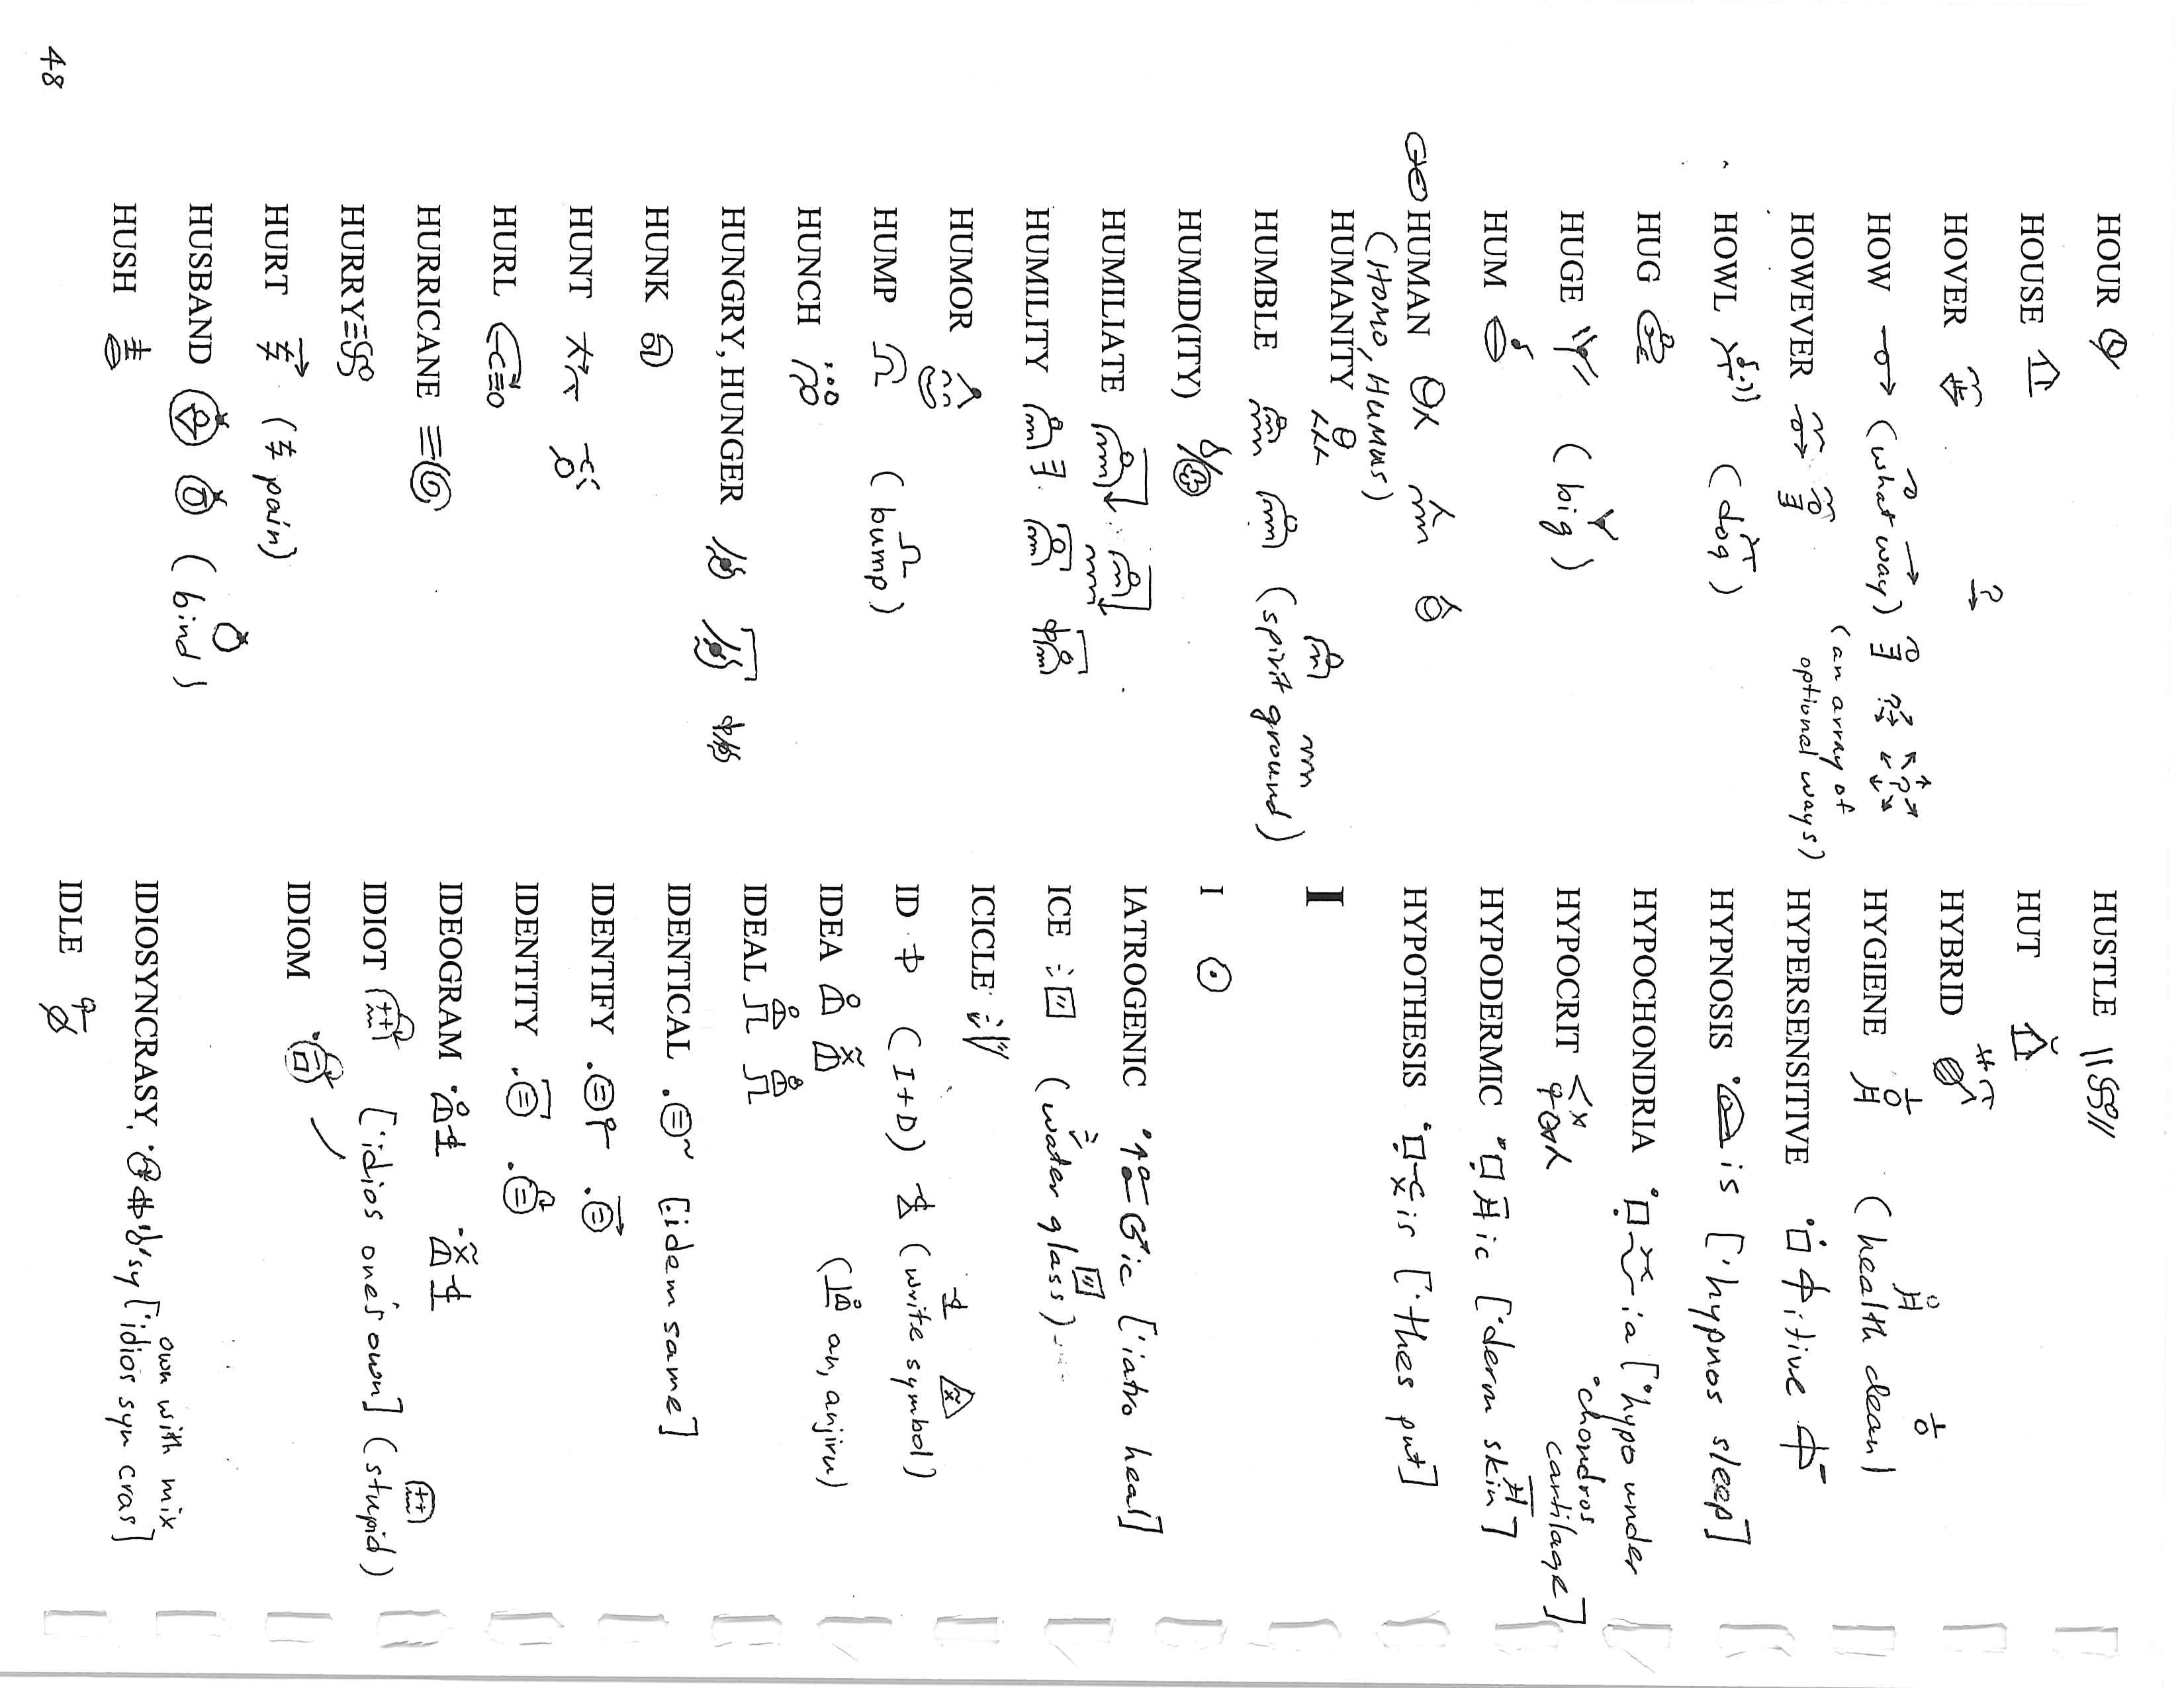 HOUR
HOUSE
HOVER
HOW (what way)
HOWEVER (an array of
optional ways)
HOWL (dog)
HUG
HUGE (big)
HUM
HUMAN
(Homo, Humus)
HUMANITY
HUMBLE (spirit ground)
HUMID(ITY)
HUMILIATE
HUMILITY
HUMOR
HUMP (bump)
HUNCH
HUNGRY, HUNGER
HUNK
HUNT
HURL
HURRICANE
HURRY
HURT (pain)
HUSBAND (bind)
HUSH
48
HUSTLE
HUT
HYBRID
HYGIENE (health clean)
HYPERSENSITIVE itive
HYPNOSIS is [hypnos sleep]
HYPOCHONDRIA ia [hypo under
chondros
cartilage]
HYPOCRIT
HYPODERMIC ic [derm skin]
HYPOTHESIS is [thes put]
I
I
IATROGENIC ic [iatro heal]
ICE (water glass)
ICICLE
ID (I+D) (write symbol)
IDEA (an, anjiru)
IDEAL
IDENTICAL [idem same]
IDENTIFY
IDENTITY
IDEOGRAM
IDIOT [idios one's own] (stupid)
IDIOM
own with mix
IDIOSYNCRASY sy [idios syn cras]
IDLE